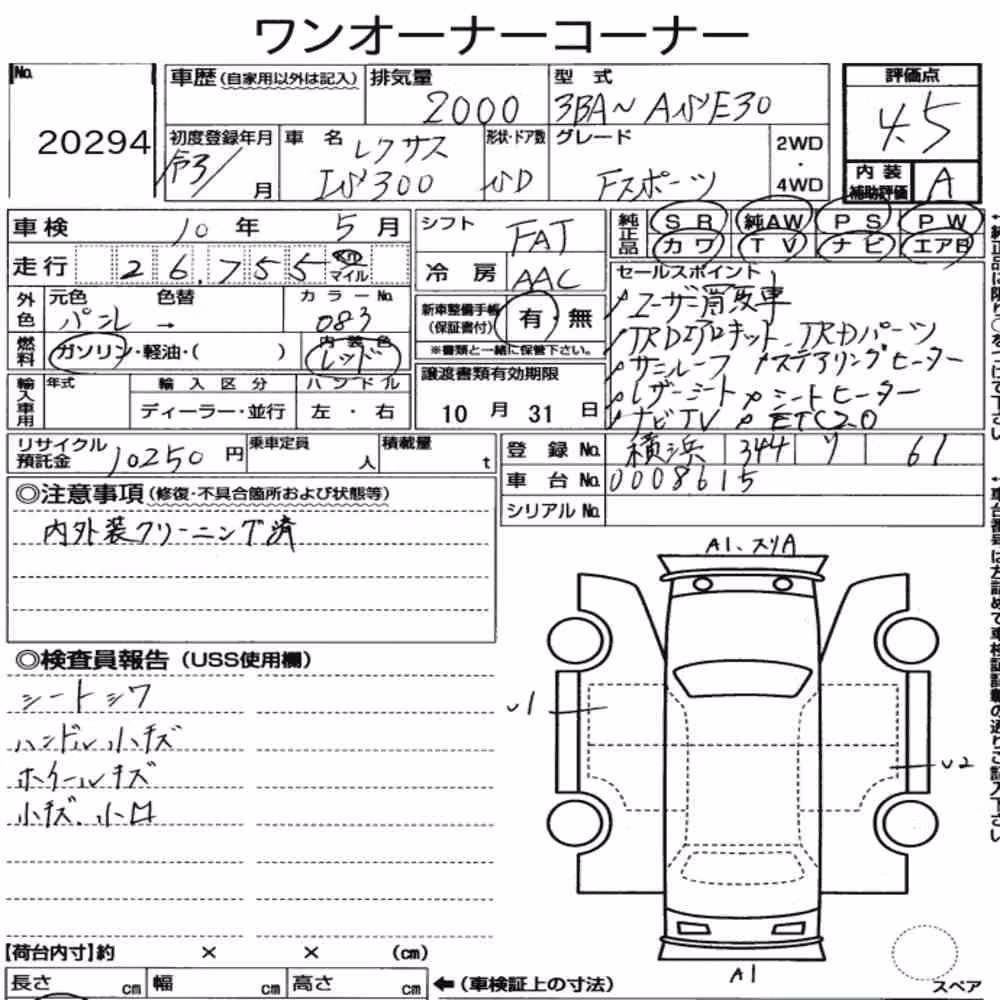 ワンオーナーコーナー
No. 20294
車歴 (自家用以外は記入)
排気量 2000
型式 3BA~ ASE30
評価点 4.5
内装補助評価 A
初度登録年月 令3/ 月
車名 レクサス IS300
形状・ドア数 SD
グレード Fスポーツ
2WD・4WD
車検 10年 5月
走行 26,755 km マイル
シフト FAT
冷房 AAC
純正品 SR 純AW PS PW
カワ TV ナビ エアB
外色 元色 パール 色替 →
カラーNo. 083
内装色 レッド
燃料 ガソリン・軽油・( )
新車整備手帳(保証書付) 有・無
※書類と一緒に保管下さい。
セールスポイント
ユーザー買取車
TRDエアロキット、TRDパーツ
サンルーフ ステアリングヒーター
レザーシート シートヒーター
ナビTV ETC2.0
輸入車用 年式 輸入区分 ハンドル
ディーラー・並行 左・右
譲渡書類有効期限
10月31日
リサイクル預託金 10250円
乗車定員 人
積載量 t
登録No. 横浜 344 ソ 61
車台No. 0008615
シリアルNo.
◎注意事項 (修復・不具合箇所および状態等)
内外装クリーニング済
◎検査員報告 (USS使用欄)
シートシワ
ハンドル小キズ
ホイールキズ
小キズ、小凹
A1、スリA
U1
U2
A1
スペア
【荷台内寸】約 × × (cm)
長さ cm 幅 cm 高さ cm
←(車検証上の寸法)